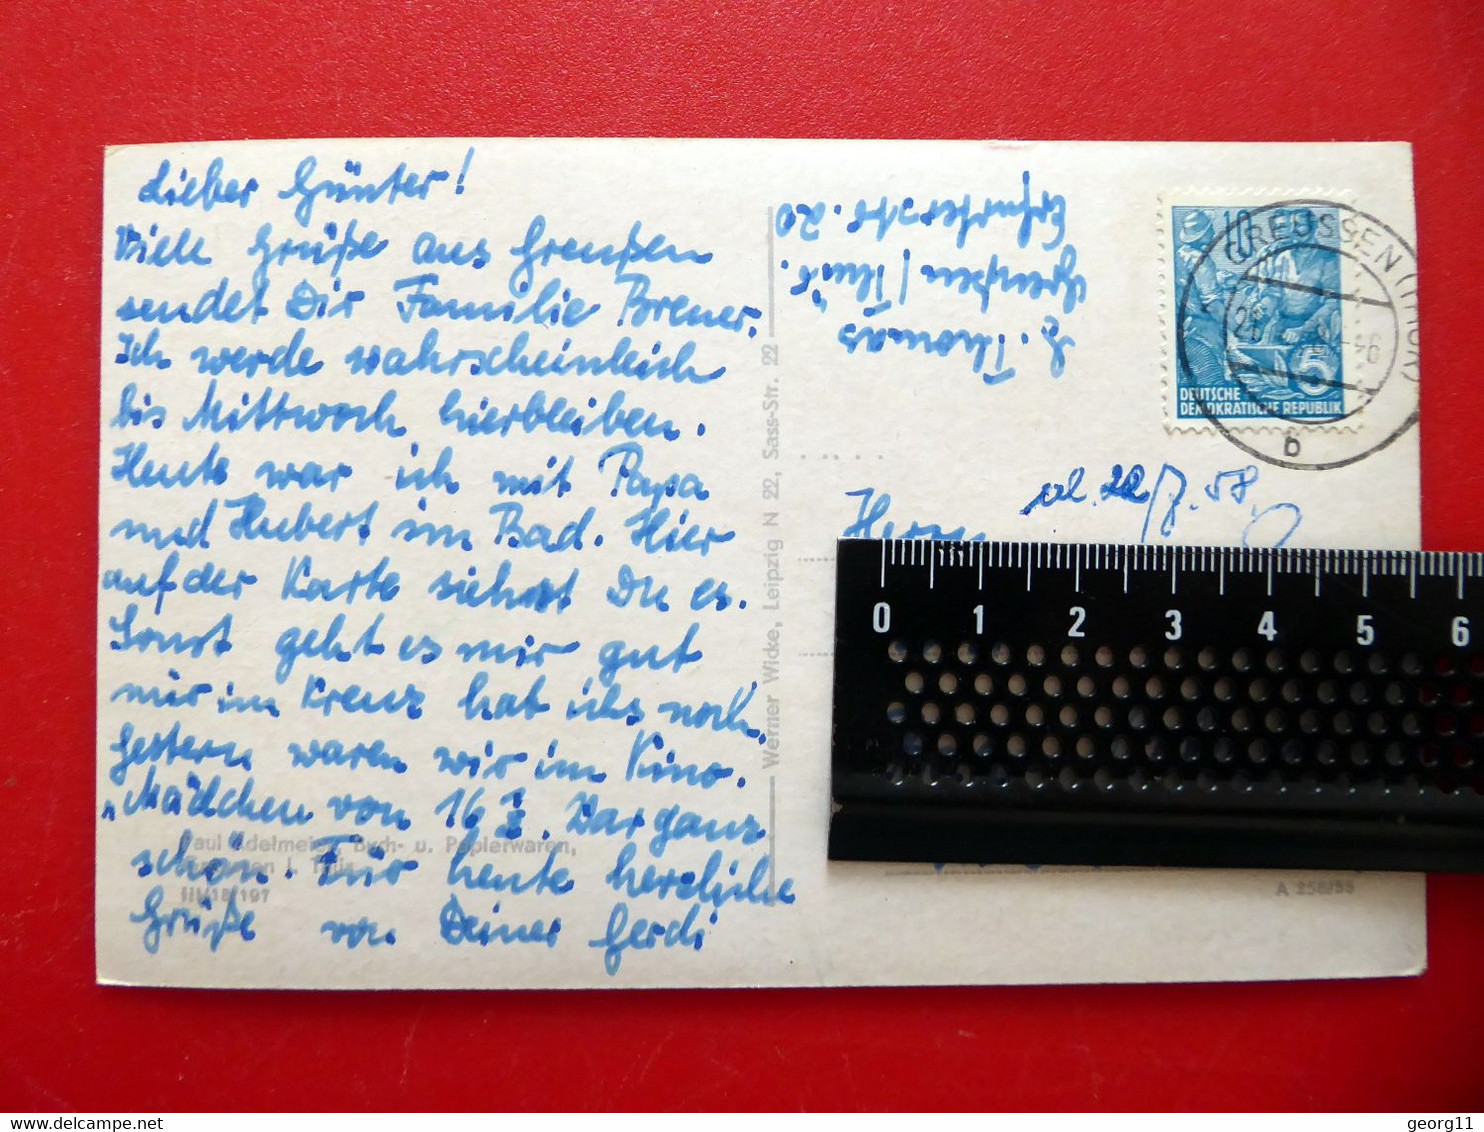 Lieber Günter!
Viele Grüße aus Greußen
sendet Dir Familie Breuer.
Ich werde wahrscheinlich
bis Mittwoch hierbleiben.
Heute war ich mit Papa
und Hubert im Bad. Hier
auf der Karte siehst Du es.
Sonst geht es mir gut
nur im Kreuz hat ichs noch.
Gestern waren wir im Kino.
"Mädchen von 16 ½. War ganz
schön. Für heute herzliche
Grüße von Deiner Gerdi
Paul Adelmeier, Buch- u. Papierwaren,
Greussen i. Thür.
III/18/197
Werner Wicke, Leipzig N 22, Sass-Str. 22
G. Thomas
Greußen / Thür.
Erfurterstr. 20
10
5
DEUTSCHE
DEMOKRATISCHE REPUBLIK
GREUSSEN (THÜR)
b
22/7. 58.
Herrn
0 1 2 3 4 5 6
A 258/55
georg11